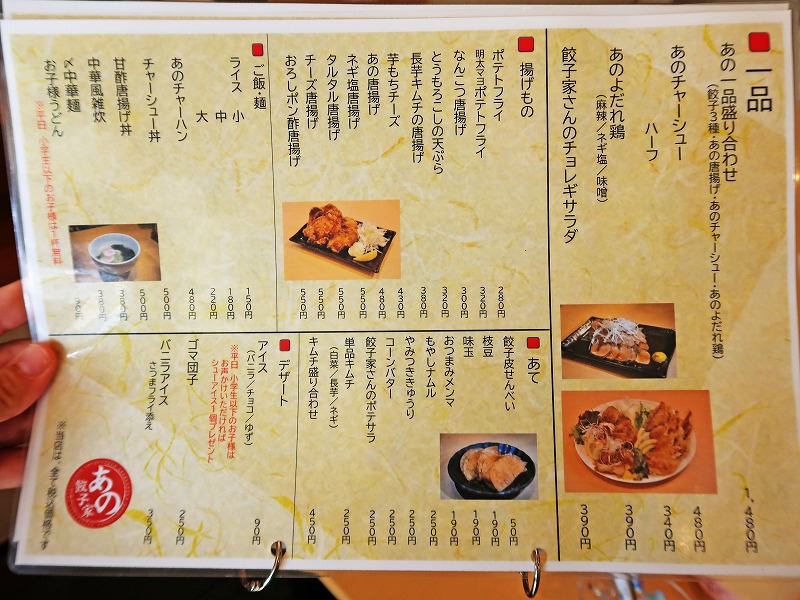 一品
あの一品盛り合わせ 1,480円
(餃子3種・あの唐揚げ・あのチャーシュー・あのよだれ鶏)
あのチャーシュー 480円
ハーフ 340円
あのよだれ鶏 390円
(麻辣／ネギ塩／味噌)
餃子家さんのチョレギサラダ 390円
揚げもの
ポテトフライ 280円
明太マヨポテトフライ 320円
なんこつ唐揚げ 300円
とうもろこしの天ぷら 320円
長芋キムチの唐揚げ 380円
芋もちチーズ 430円
あの唐揚げ 480円
ネギ塩唐揚げ 550円
タルタル唐揚げ 550円
チーズ唐揚げ 550円
おろしポン酢唐揚げ 550円
ご飯・麺
ライス 小 150円
中 180円
大 220円
あのチャーハン 480円
チャーシュー丼 500円
甘酢唐揚げ丼 500円
中華風雑炊 380円
〆中華麺 380円
お子様うどん
※平日 小学生以下のお子様は1杯無料
あて
餃子皮せんべい 50円
枝豆 190円
味玉 190円
おつまみメンマ 190円
もやしナムル 250円
やみつききゅうり 250円
コーンバター 250円
餃子家さんのポテサラ 250円
単品キムチ 250円
(白菜／長芋／ネギ)
キムチ盛り合わせ 450円
デザート
アイス 90円
(バニラ／チョコ／ゆず)
※平日 小学生以下のお子様は
お声かけいただければ
シューアイス1個プレゼント
ゴマ団子 250円
バニラアイス 350円
さつまフライ添え
※当店は、全て税込価格です
あの
餃子家